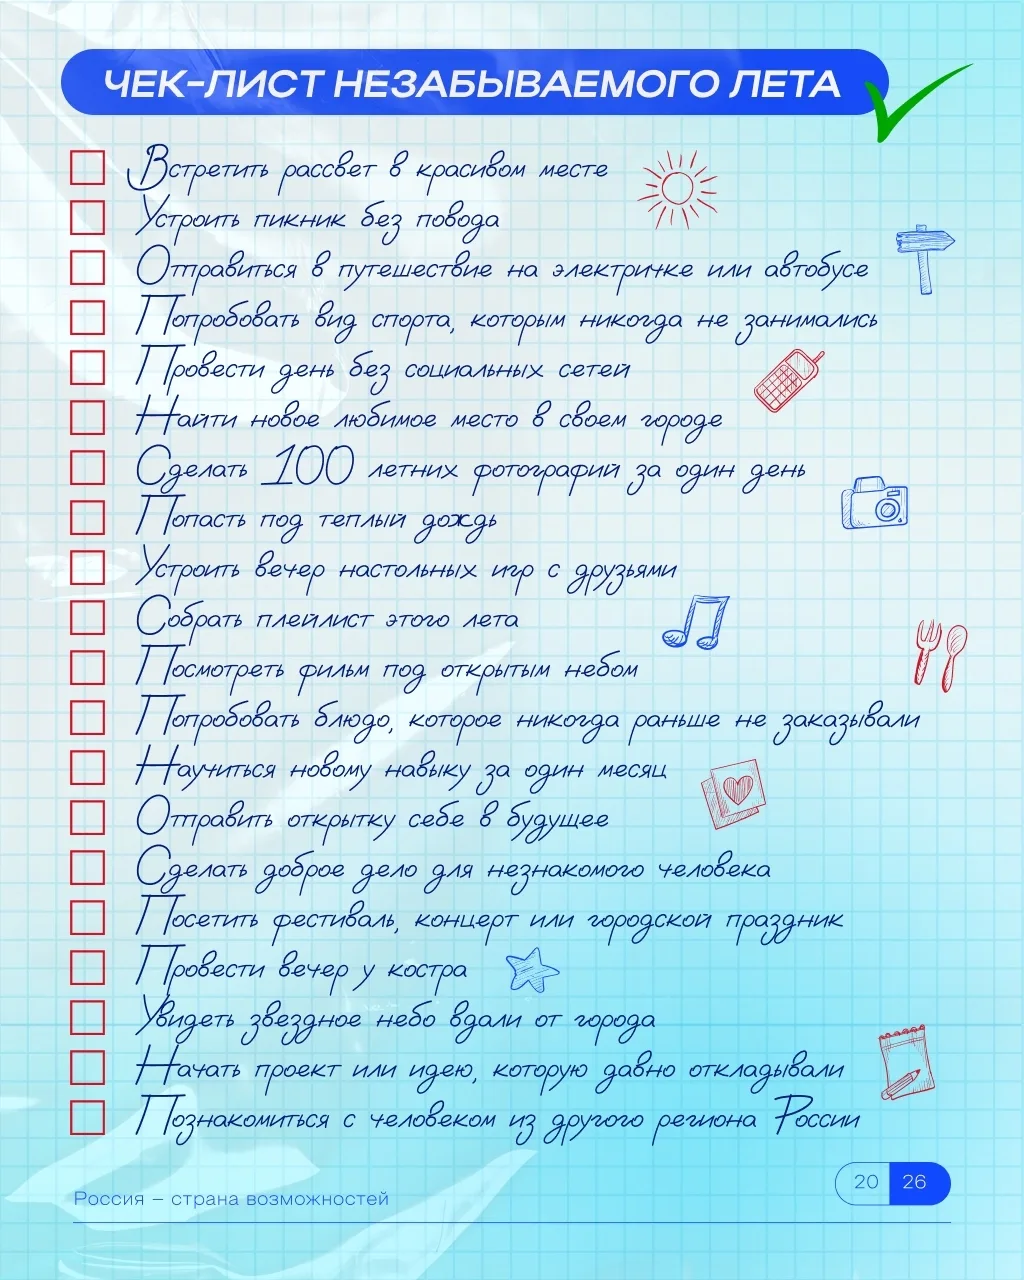 ЧЕК-ЛИСТ НЕЗАБЫВАЕМОГО ЛЕТА
Встретить рассвет в красивом месте
Устроить пикник без повода
Отправиться в путешествие на электричке или автобусе
Попробовать вид спорта, которым никогда не занимались
Провести день без социальных сетей
Найти новое любимое место в своем городе
Сделать 100 летних фотографий за один день
Попасть под теплый дождь
Устроить вечер настольных игр с друзьями
Собрать плейлист этого лета
Посмотреть фильм под открытым небом
Попробовать блюдо, которое никогда раньше не заказывали
Научиться новому навыку за один месяц
Отправить открытку себе в будущее
Сделать доброе дело для незнакомого человека
Посетить фестиваль, концерт или городской праздник
Провести вечер у костра
Увидеть звездное небо вдали от города
Начать проект или идею, которую давно откладывали
Познакомиться с человеком из другого региона России
Россия – страна возможностей
20 26